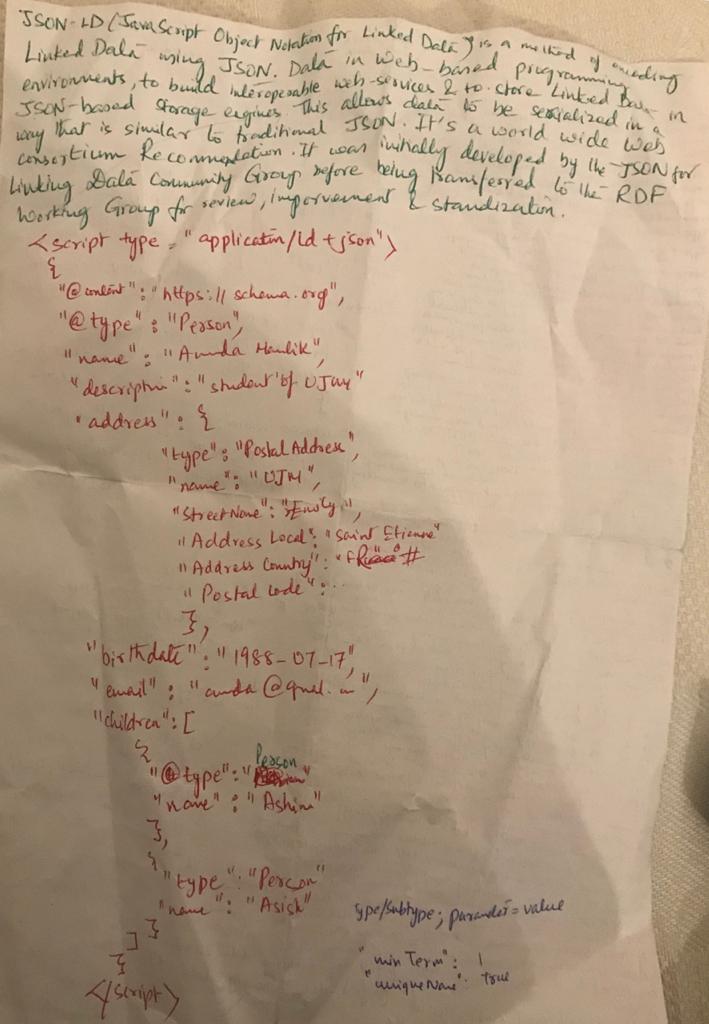 JSON-LD (JavaScript Object Notation for Linked Data) is a method of encoding
Linked Data using JSON. Data in web-based programming
environments, to build interoperable web-services & to store Linked Data in
JSON-based storage engines. This allows data to be serialized in a
way that is similar to traditional JSON. It's a world wide web
consortium Recommendation. It was initially developed by the JSON for
Linking Data Community Group before being transferred to the RDF
Working Group for review, imporvement & standization.
<script type = "application/ld+json">
{
"@context": "https:// schema.org",
"@type": "Person",
"name": "
"description": "student of UJM"
"address": {
"type": "Postal Address",
"name": "UJM",
"Street Name": "
"Address Local": "Saint Etienne"
"Address Country": "
"Postal code": ..
},
"birthdate": "1988-07-17",
"email":
"children": [
{
"@type": "Person"
"name": "Ashim"
},
{
"type": "Person"
"name": "Asish"
}
]
}
</script>
type/subtype; parameter=value
"minTerm": 1
"uniqueName": True